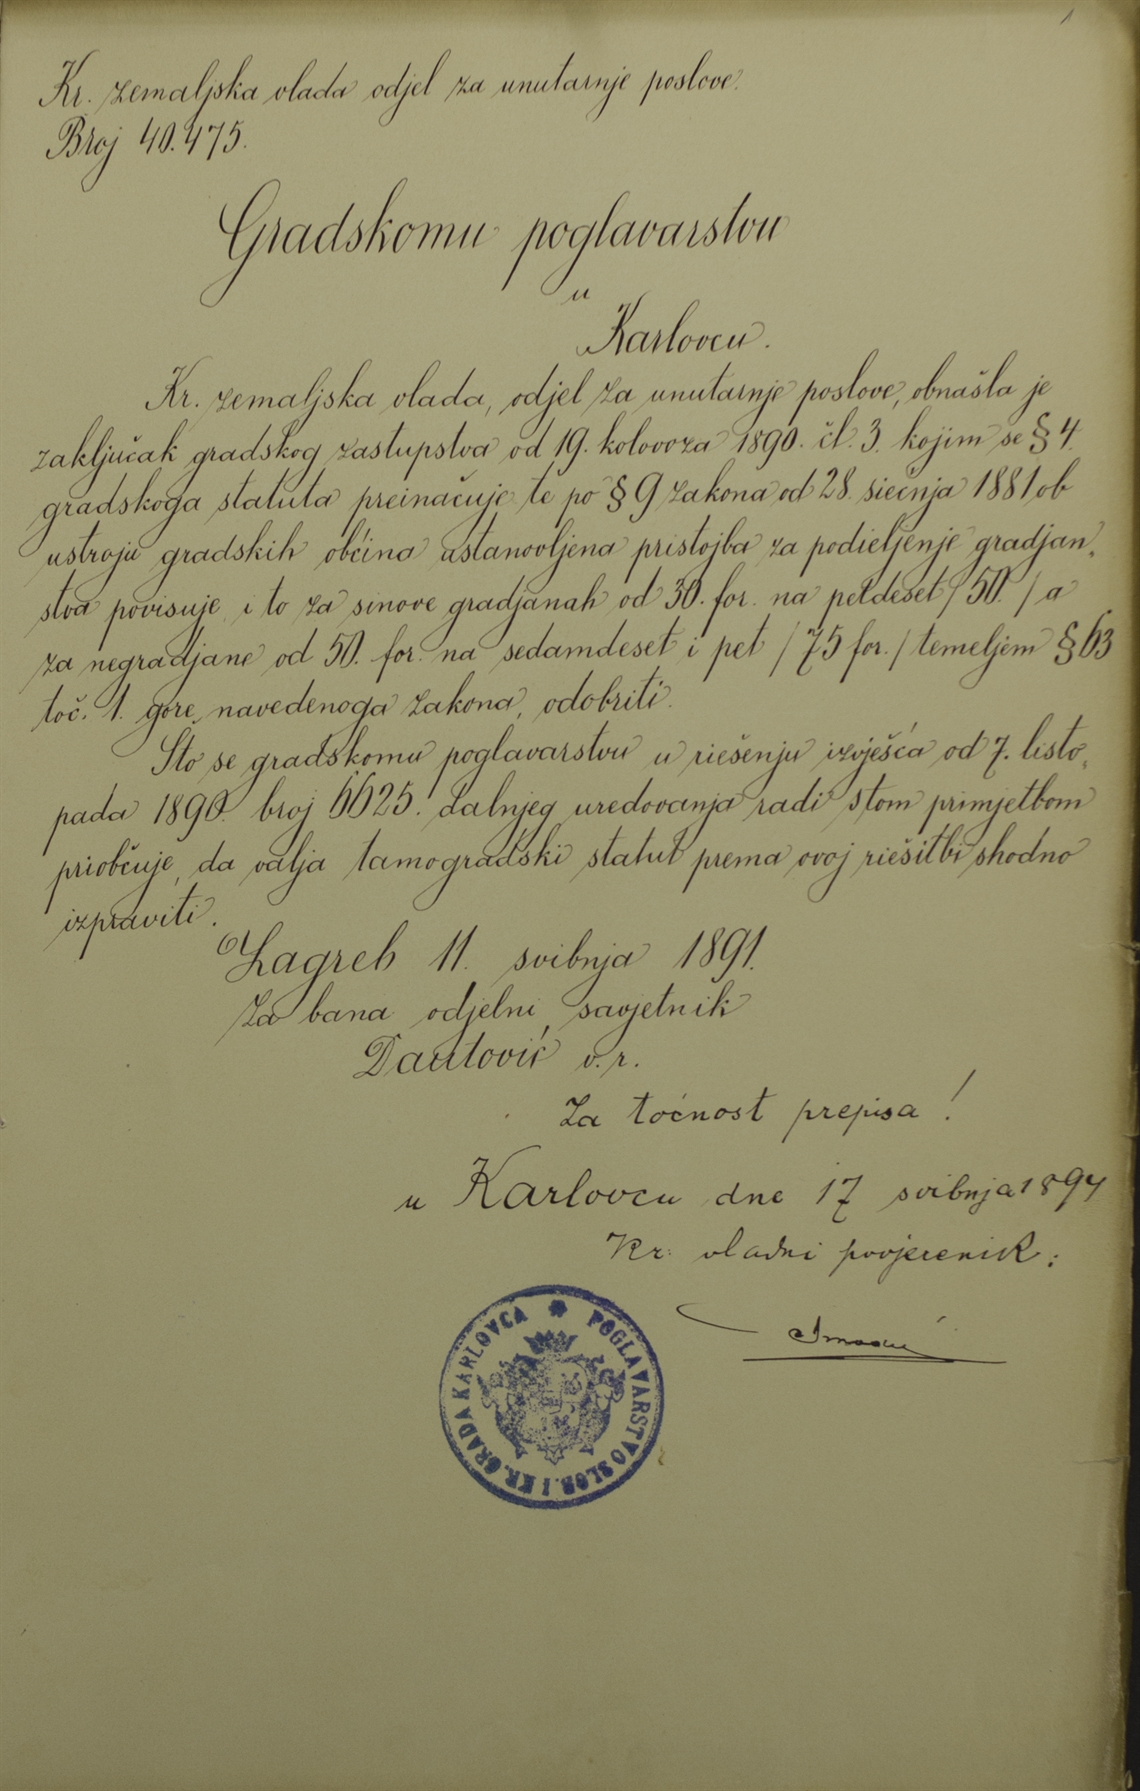 1
Kr. zemaljska vlada odjel za unutarnje poslove.
Broj 40.475.
Gradskomu poglavarstvu
u
Karlovcu.
Kr. zemaljska vlada, odjel za unutarnje poslove, obnašla je
zaključak gradskog zastupstva od 19. kolovoza 1890. čl. 3. kojim se § 4.
gradskoga statuta preinačuje te po § 9 zakona od 28. siečnja 1881 ob
ustroju gradskih obćina ustanovljena pristojba za podieljenje gradjan„
stva povisuje, i to za sinove gradjanah od 30. for. na petdeset / 50. / a
za negradjane od 50. for. na sedamdeset i pet / 75 for. / temeljem § 63
toč. 1. gore navedenoga zakona, odobriti.
Što se gradskomu poglavarstvu u riešenju izvješća od 7. listo„
pada 1890. broj 6625. dalnjeg uredovanja radi stom primjetbom
priobćuje, da valja tamogradski statut prema ovoj riešitbi shodno
izpraviti.
Zagreb 11. svibnja 1891.
Za bana odjelni savjetnik
Dautović v.r.
Za točnost prepisa!
u Karlovcu dne 17 svibnja 1894
Kr. vladni povjerenik:
POGLAVARSTVO SLOB. I KR. GRADA KARLOVCA